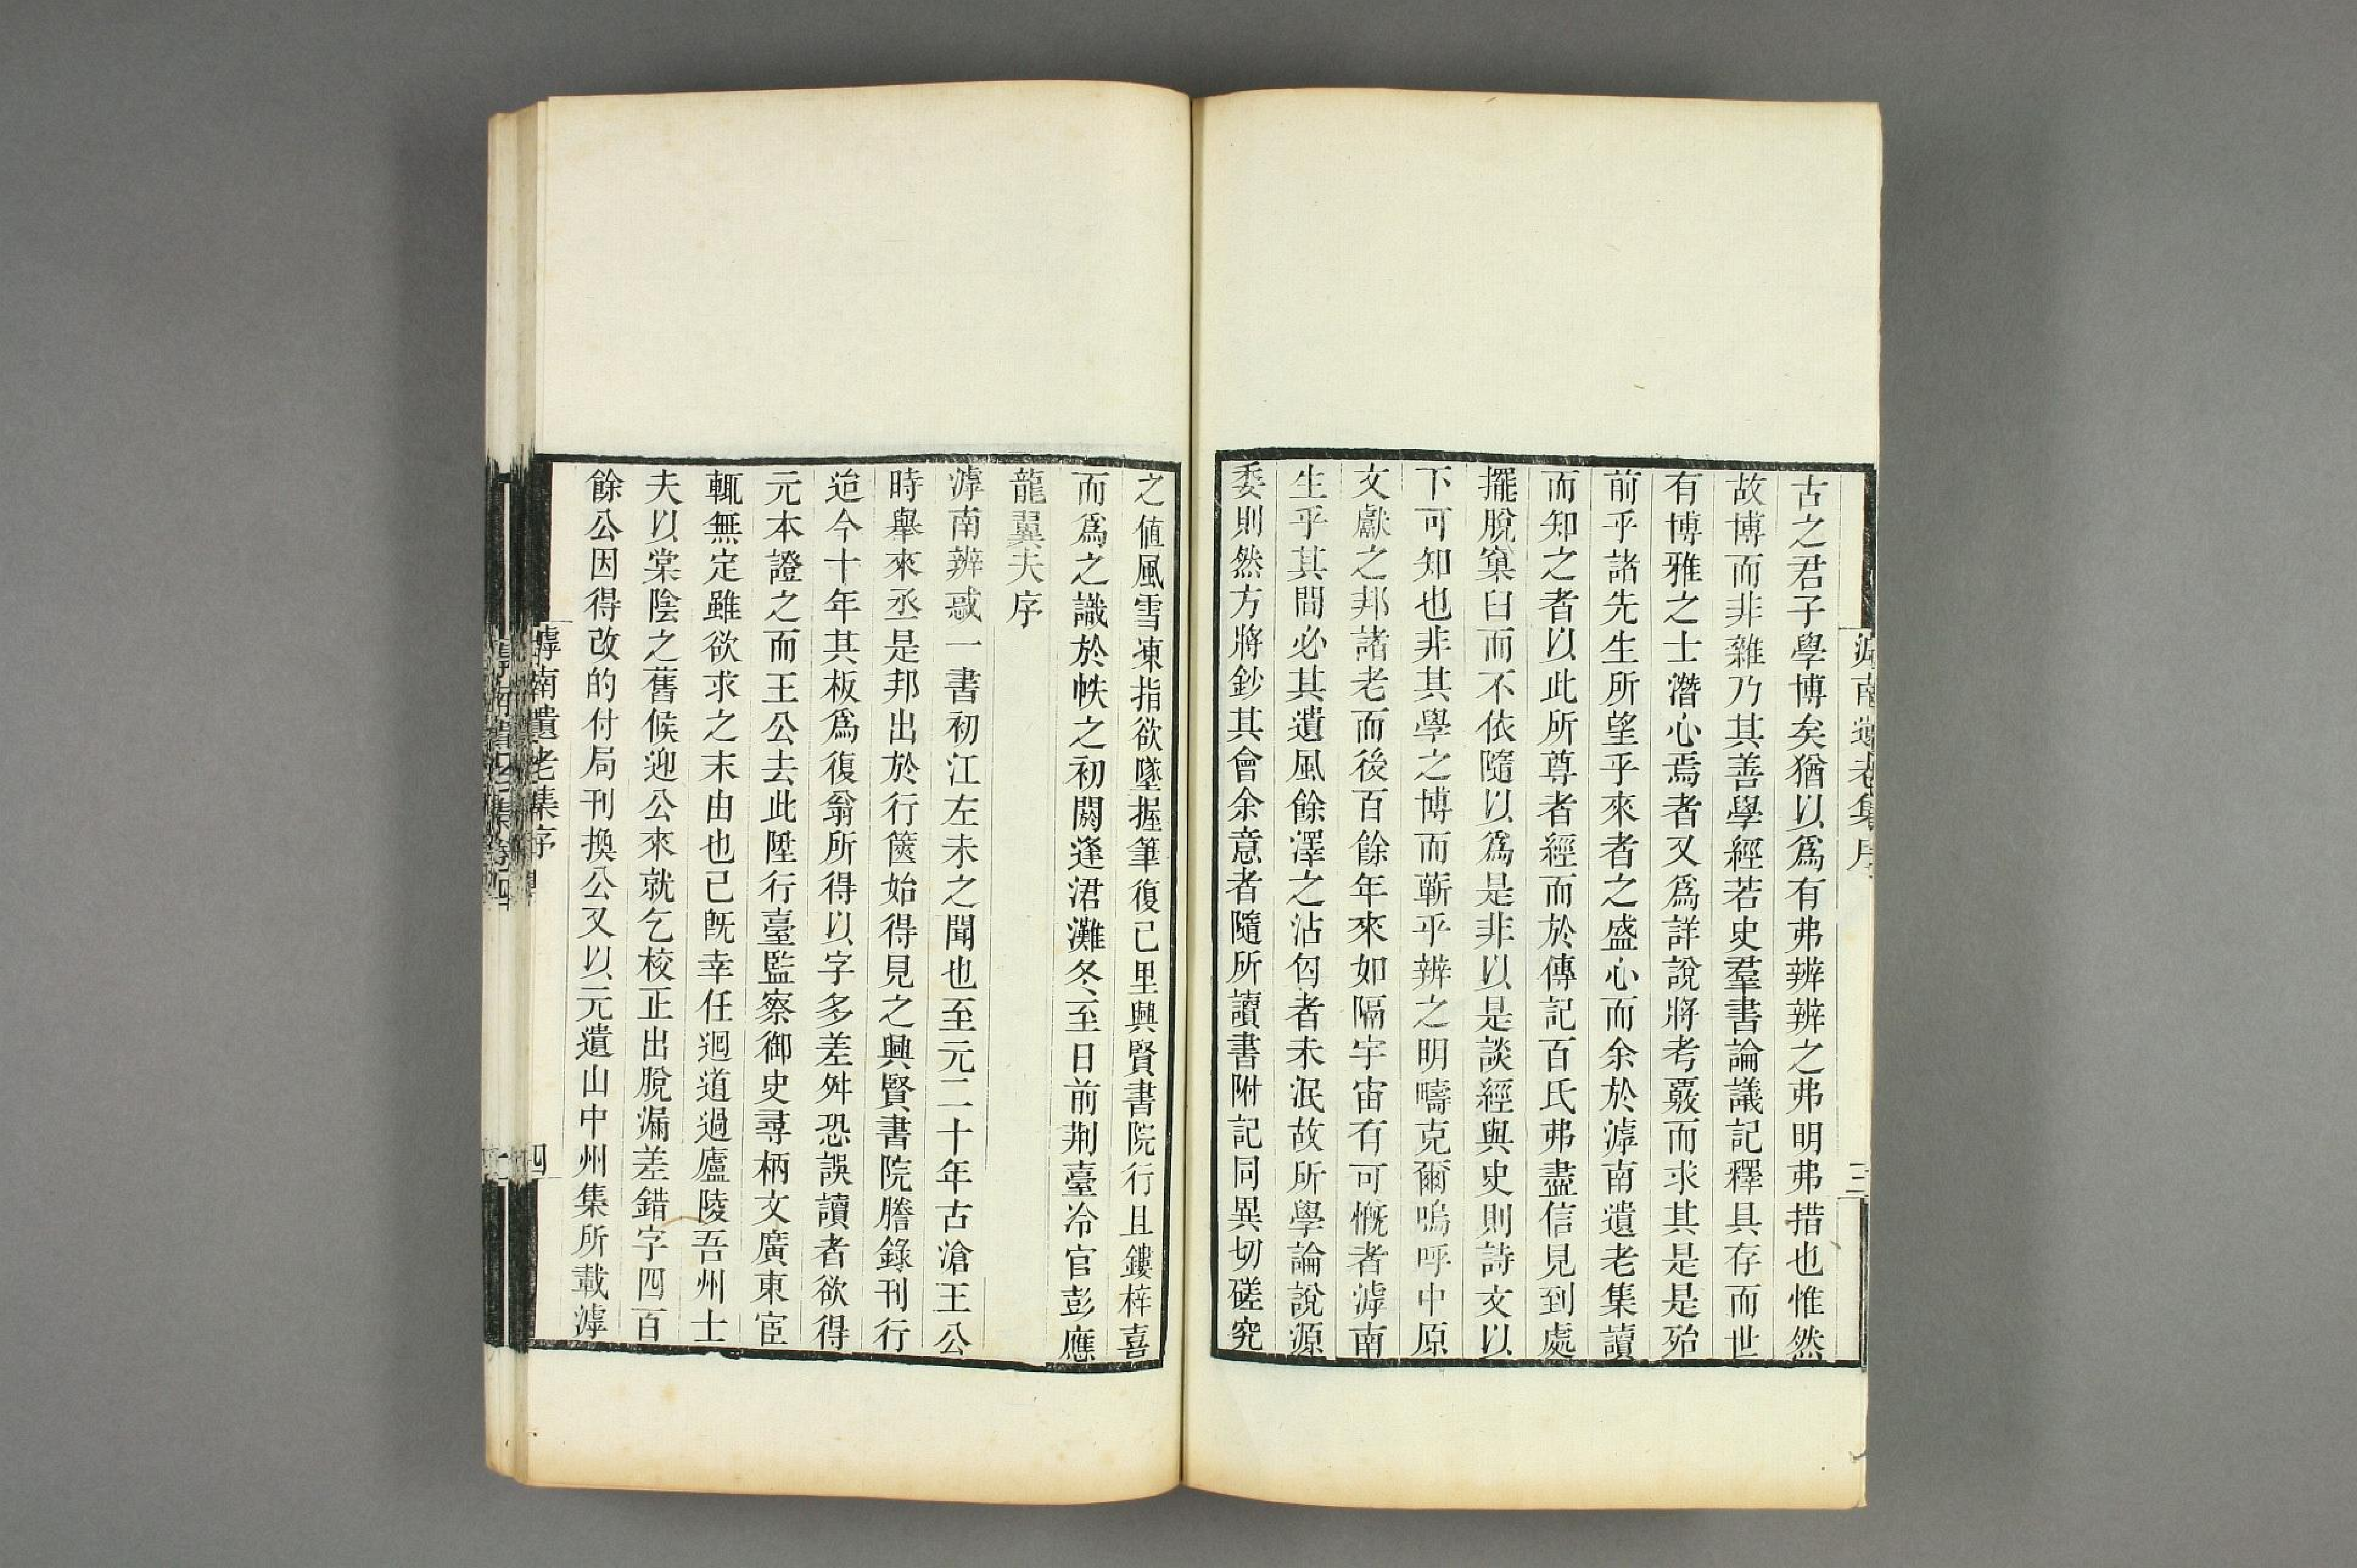 滹南遺老集序
三
古之君子學博矣猶以爲有弗辨辨之弗明弗措也惟然
故博而非雜乃其善學經若史羣書論議記釋具存而世
有博雅之士潛心焉者又爲詳說將考覈而求其是是殆
前乎諸先生所望乎來者之盛心而余於滹南遺老集讀
而知之者以此所尊者經而於傳記百氏弗盡信見到處
擺脫窠臼而不依隨以爲是非以是談經與史則詩文以
下可知也非其學之博而蘄乎辨之明疇克爾嗚呼中原
文獻之邦諸老而後百餘年來如隔宇宙有可慨者滹南
生乎其間必其遺風餘澤之沾匄者未泯故所學論說源
委則然方將鈔其會余意者隨所讀書附記同異切磋究
之値風雪凍指欲墜握筆復已里興賢書院行且鏤梓喜
而爲之識於帙之初閼逢涒灘冬至日前荆臺冷官彭應
龍翼夫序
滹南辨惑一書初江左未之聞也至元二十年古滄王公
時舉來丞是邦出於行篋始得見之興賢書院謄錄刊行
迨今十年其板爲復翁所得以字多差舛恐誤讀者欲得
元本證之而王公去此陞行臺監察御史尋柄文廣東宦
輒無定雖欲求之末由也已旣幸任迴道過廬陵吾州士
夫以棠陰之舊候迎公來就乞校正出脫漏差錯字四百
餘公因得改的付局刊換公又以元遺山中州集所載滹
滹南遺老集序
四